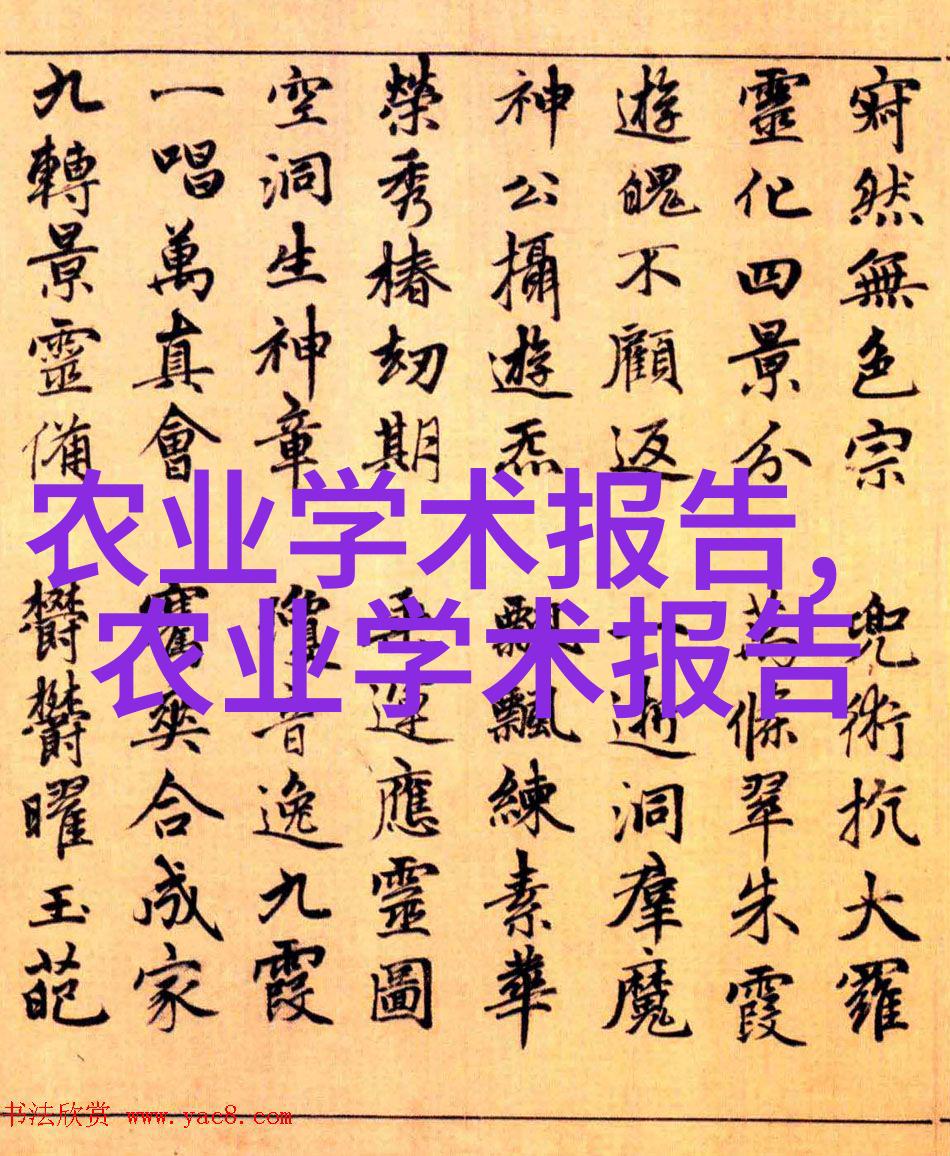 寂然無色宗 兜術抗大羅
靈化四景分 萬條翠朱霞
遊魄不顧返 逝洞羣魔
神公攝遊炁 飄飄練素華
榮秀椿劫期 應靈圖
空洞生神章 瓊音逸九霞
一唱萬真會 騫爽合成家
九轉景靈備 欝欝曜玉葩
农业学术报告,
农业学术报告
书法欣赏 www.yac8.com